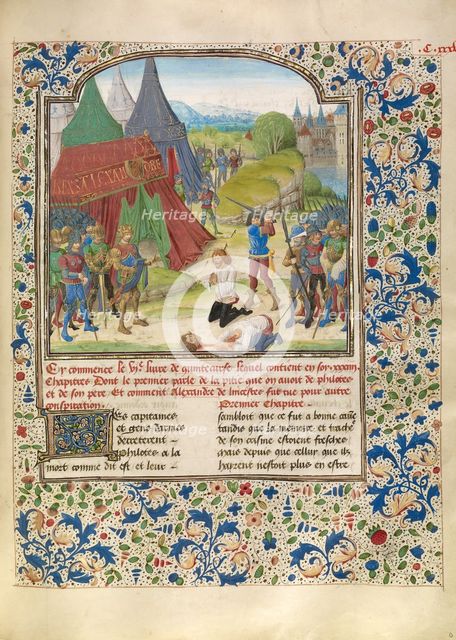 C. xxxi
Heritage Images
Heritage Images
Cy commence le vi.e livre de quinte curse lequel contient en soy xxxiii
Chapitres Dont le premier parle de la pitie que on avoit de philotes
et de son pere Et comment Alexandre de lincestes fut tue pour autre
conspiration.
Premier Chapitre
Les capitaines
et gens darmes
decreterent
philotes a la
mort comme dit est et leur
sembloit que ce fut a bonne cause
tandis que la memoire et
de son crisme estoient fresches
mais depuis que cellui que ilz
nestoit plus en estre